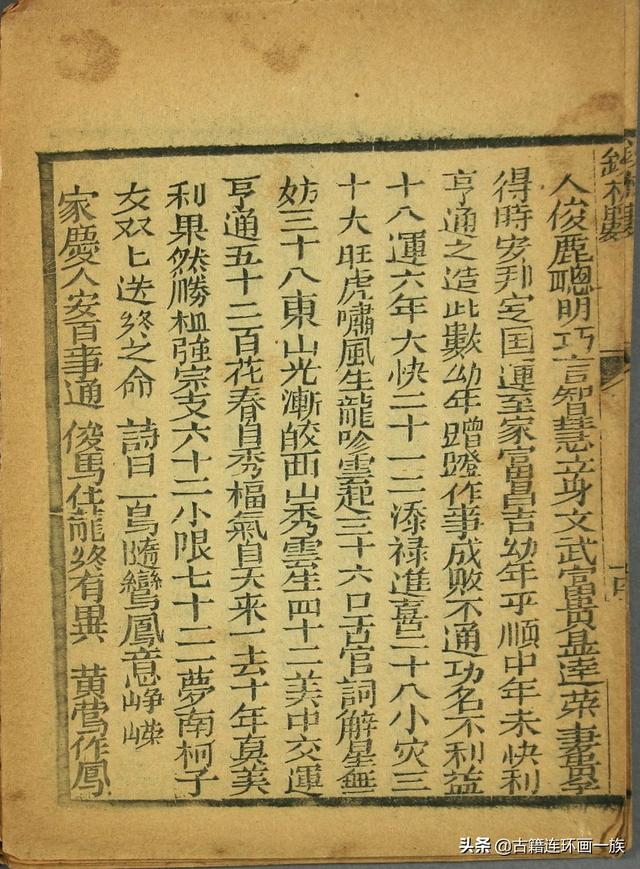 人俊鹿聰明巧言智慧立身文武富貴益逹荣妻貴孚
得時安邦定国運至家富昌吉幼年平順中年未快利
亨通之造此數幼年蹭蹬作事成敗不通功名不利益
十八運六年大快二十一二添禄進喜二十八小灾三
十大旺虎嘯風生龍吟雲起三十六口舌官詞解星無
妨三十八東山光漸皎西山秀雲生四十二美中交運
亨通五十二百花春自秀福氣自天来一去十年真美
利果然勝祖強宗支六十二小限七十二一夢南柯子
女双上送终之命 詩曰 一鳥隨鸞鳳意峥嶸
家慶人安百事通 俊馬化龍终有異 黄鶯作鳳
头条 @古籍连环画一族